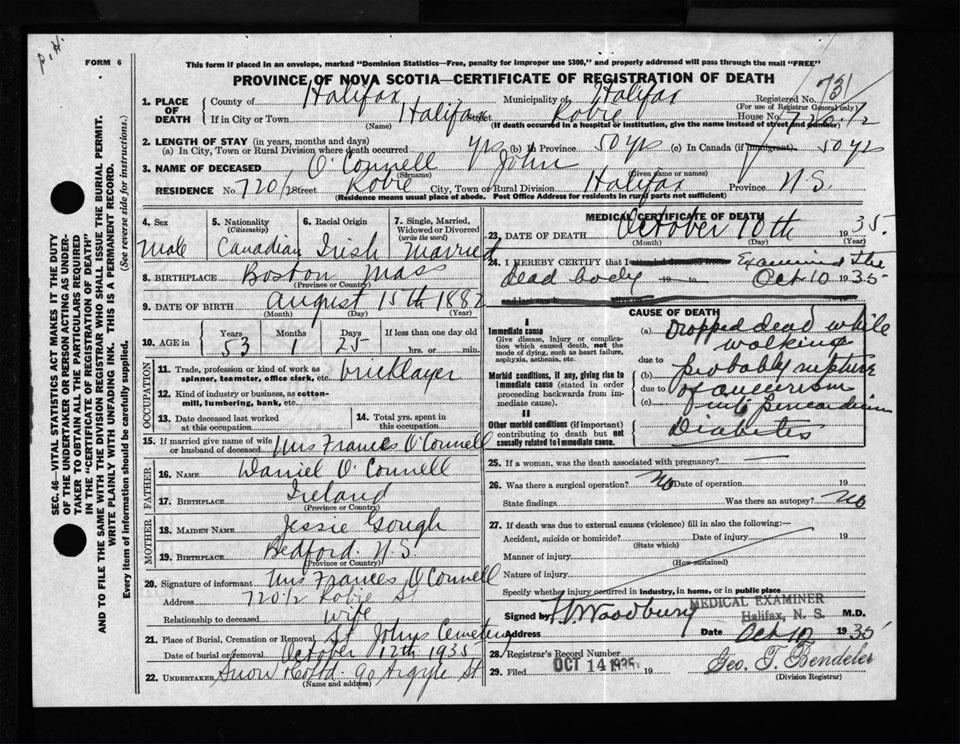 P.H.
FORM 6
This form if placed in an envelope, marked "Dominion Statistics—Free, penalty for improper use $300," and properly addressed will pass through the mail "FREE"
PROVINCE OF NOVA SCOTIA—CERTIFICATE OF REGISTRATION OF DEATH
1. PLACE OF DEATH
County of Halifax Municipality of Halifax Registered No. 731
(For use of Registrar General only)
If in City or Town Halifax Street Robie House No. 720 1/2
(Name) (If death occurred in a hospital or institution, give the name instead of street and number)
2. LENGTH OF STAY (in years, months and days)
(a) In City, Town or Rural Division where death occurred yrs (b) In Province 50 yrs (c) In Canada (if immigrant) 50 yrs
3. NAME OF DECEASED O'Connell John
(Surname) (Given name or names)
RESIDENCE No. 720 1/2 Street Robie City, Town or Rural Division Halifax Province N.S.
(Residence means usual place of abode. Post Office Address for residents in rural parts not sufficient)
4. Sex
Male
5. Nationality (Citizenship)
Canadian
6. Racial Origin
Irish
7. Single, Married, Widowed or Divorced (write the word)
Married
8. BIRTHPLACE Boston Mass
(Province or Country)
9. DATE OF BIRTH August 15th 1882
(Month) (Day) (Year)
10. AGE in
Years Months Days If less than one day old
53 1 25 hrs. or min.
OCCUPATION
11. Trade, profession or kind of work as spinner, teamster, office clerk, etc. bricklayer
12. Kind of industry or business, as cotton-mill, lumbering, bank, etc.
13. Date deceased last worked at this occupation
14. Total yrs. spent in this occupation
15. If married give name of wife or husband of deceased Mrs Frances O'Connell
FATHER
16. NAME Daniel O'Connell
17. BIRTHPLACE Ireland
(Province or Country)
MOTHER
18. MAIDEN NAME Jessie Gough
19. BIRTHPLACE Bedford. N.S.
(Province or Country)
20. Signature of informant Mrs Frances O'Connell
Address 720 1/2 Robie St
Relationship to deceased wife
21. Place of Burial, Cremation or Removal St Johns Cemetery
Date of burial or removal October 12th 1935
22. UNDERTAKER Snow 90 Argyle St
(Name and address)
MEDICAL CERTIFICATE OF DEATH
23. DATE OF DEATH October 10th 1935.
(Month) (Day) (Year)
24. I HEREBY CERTIFY that I Examined the
dead body 19 to Oct 10 1935
I
Immediate cause
Give disease, injury or complication which caused death, not the mode of dying, such as heart failure, asphyxia, asthenia, etc.
Morbid conditions, if any, giving rise to immediate cause (stated in order proceeding backwards from immediate cause).
II
Other morbid conditions (if important) contributing to death but not causally related to immediate cause.
CAUSE OF DEATH
(a) Dropped dead while
walking
due to
(b) probably rupture
due to of aneurism
(c) into pericardium
Diabetes
25. If a woman, was the death associated with pregnancy? —
26. Was there a surgical operation? No Date of operation 19
State findings Was there an autopsy? No
27. If death was due to external causes (violence) fill in also the following:—
Accident, suicide or homicide? Date of injury 19
(State which)
Manner of injury
(How sustained)
Nature of injury
Specify whether injury occurred in industry, in home, or in public place
Signed by Woodbury M.D.
MEDICAL EXAMINER
Halifax, N. S.
Address Date Oct 12 1935
28. Registrar's Record Number
29. Filed OCT 14 1935 19 Geo. T. Bendeler
(Division Registrar)
SEC. 46—VITAL STATISTICS ACT MAKES IT THE DUTY
OF THE UNDERTAKER OR PERSON ACTING AS UNDER-
TAKER TO OBTAIN ALL THE PARTICULARS REQUIRED
IN THE "CERTIFICATE OF REGISTRATION OF DEATH"
AND TO FILE THE SAME WITH THE DIVISION REGISTRAR WHO SHALL ISSUE THE BURIAL PERMIT.
WRITE PLAINLY WITH UNFADING INK. THIS IS A PERMANENT RECORD.
Every item of information should be carefully supplied. (See reverse side for instructions.)